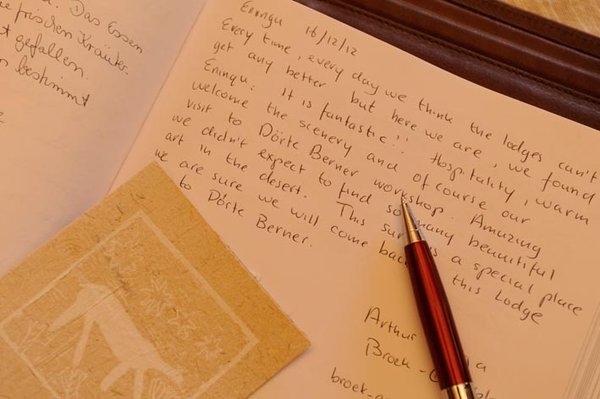 . Das Essen
e frischen Kräuter.
t gefallen.
n bestimmt
Eningu 16/12/12
Every time, every day we think the lodges can't
get any better but here we are, we found
Eningu! It is fantastic!! Hospitality, warm
welcome the scenery and of course our
visit to Dörte Berner workshop. Amazing
we didn't expect to find so many beautiful
art in the desert. This sure is a special place
we are sure we will come back this Lodge
to Dörte Berner.
Arthur
Broek -
broek-